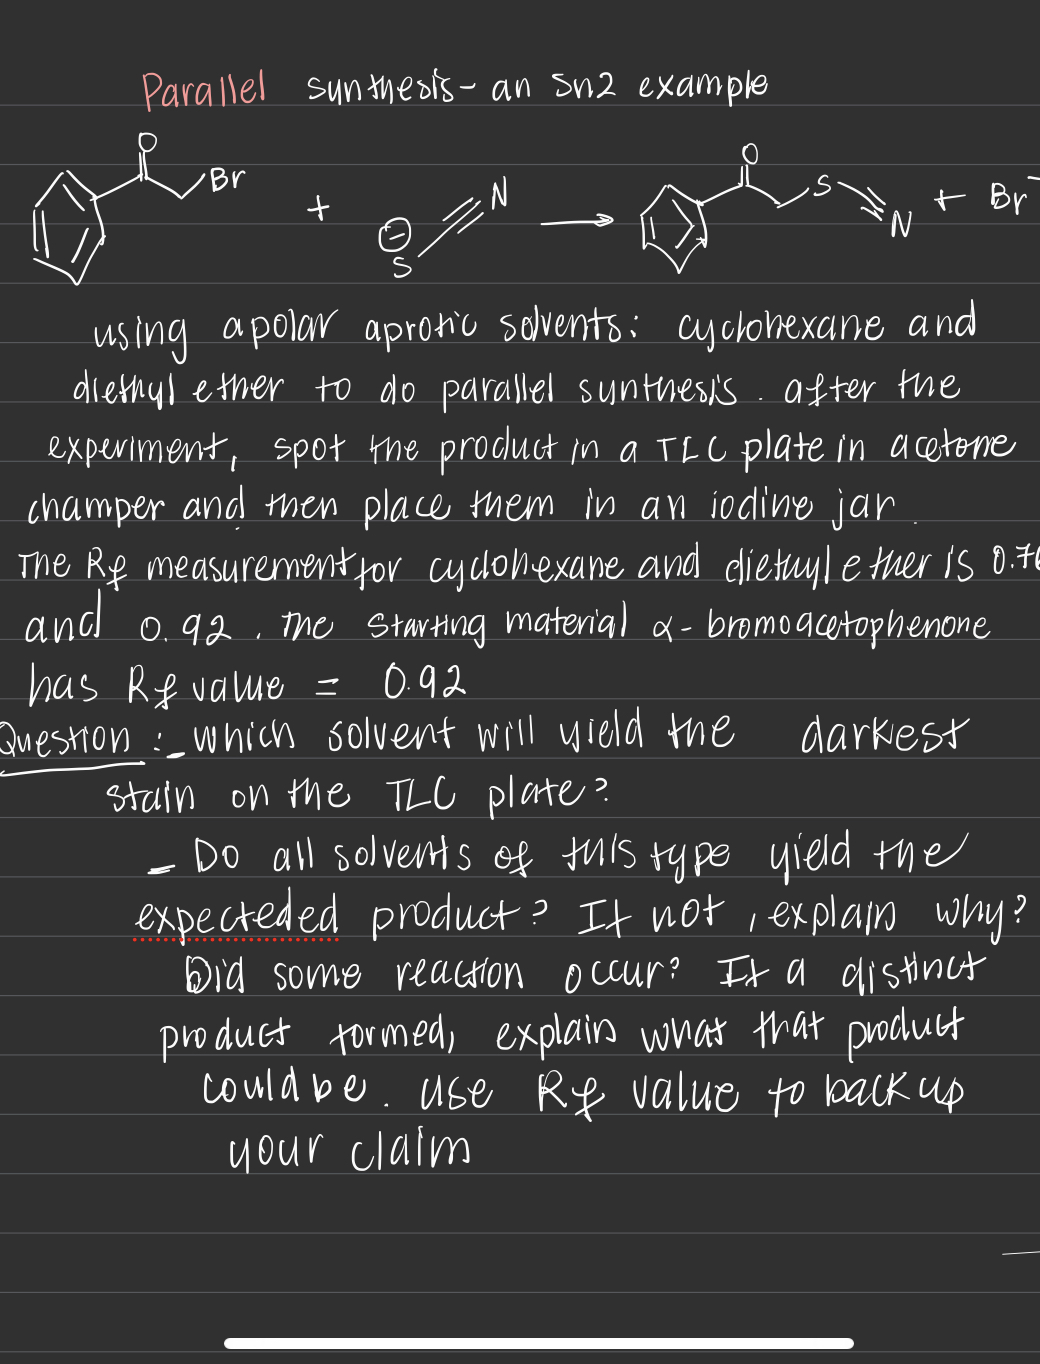 Parallel synthesis - an Sn2 example
O Br + ⊖ S N → O S N + Br⁻
using apolar aprotic solvents: cyclohexane and
diethyl ether to do parallel synthesis. after the
experiment, spot the product in a TLC plate in acetone
champer and then place them in an iodine jar.
The Rf measurement for cyclohexane and diethyl ether is 0.76
and 0.92. The starting material α-bromoacetophenone
has Rf value = 0.92
Question :- which solvent will yield the darkest
stain on the TLC plate?
- Do all solvents of this type yield the
expecteded product? If not, explain why?
Did some reaction occur? If a distinct
product formed, explain what that product
could be. use Rf value to backup
your claim